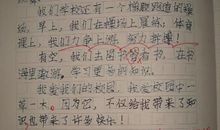 我们学校还有一个橡胶跑道的操
场。早上，我们在操场上晨练；体育
课上，我们力争上游，努力拼搏！
有空，我们去图书馆看书，在书
海里遨游，学习更多的知识。
我爱我们的校园，我爱校园中一
草一木。因为它，不仅给我带来了知
识也带来了许多快乐！